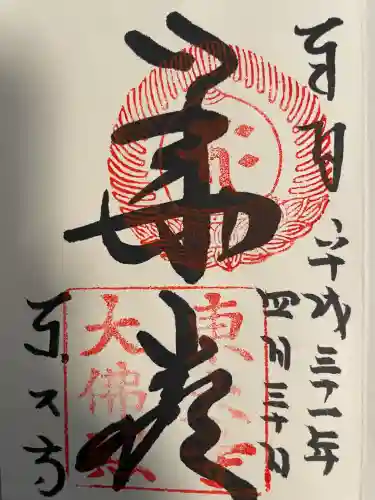 奉拝
平成三十一年
四月三十日
華厳
東大寺
大佛殿
東大寺